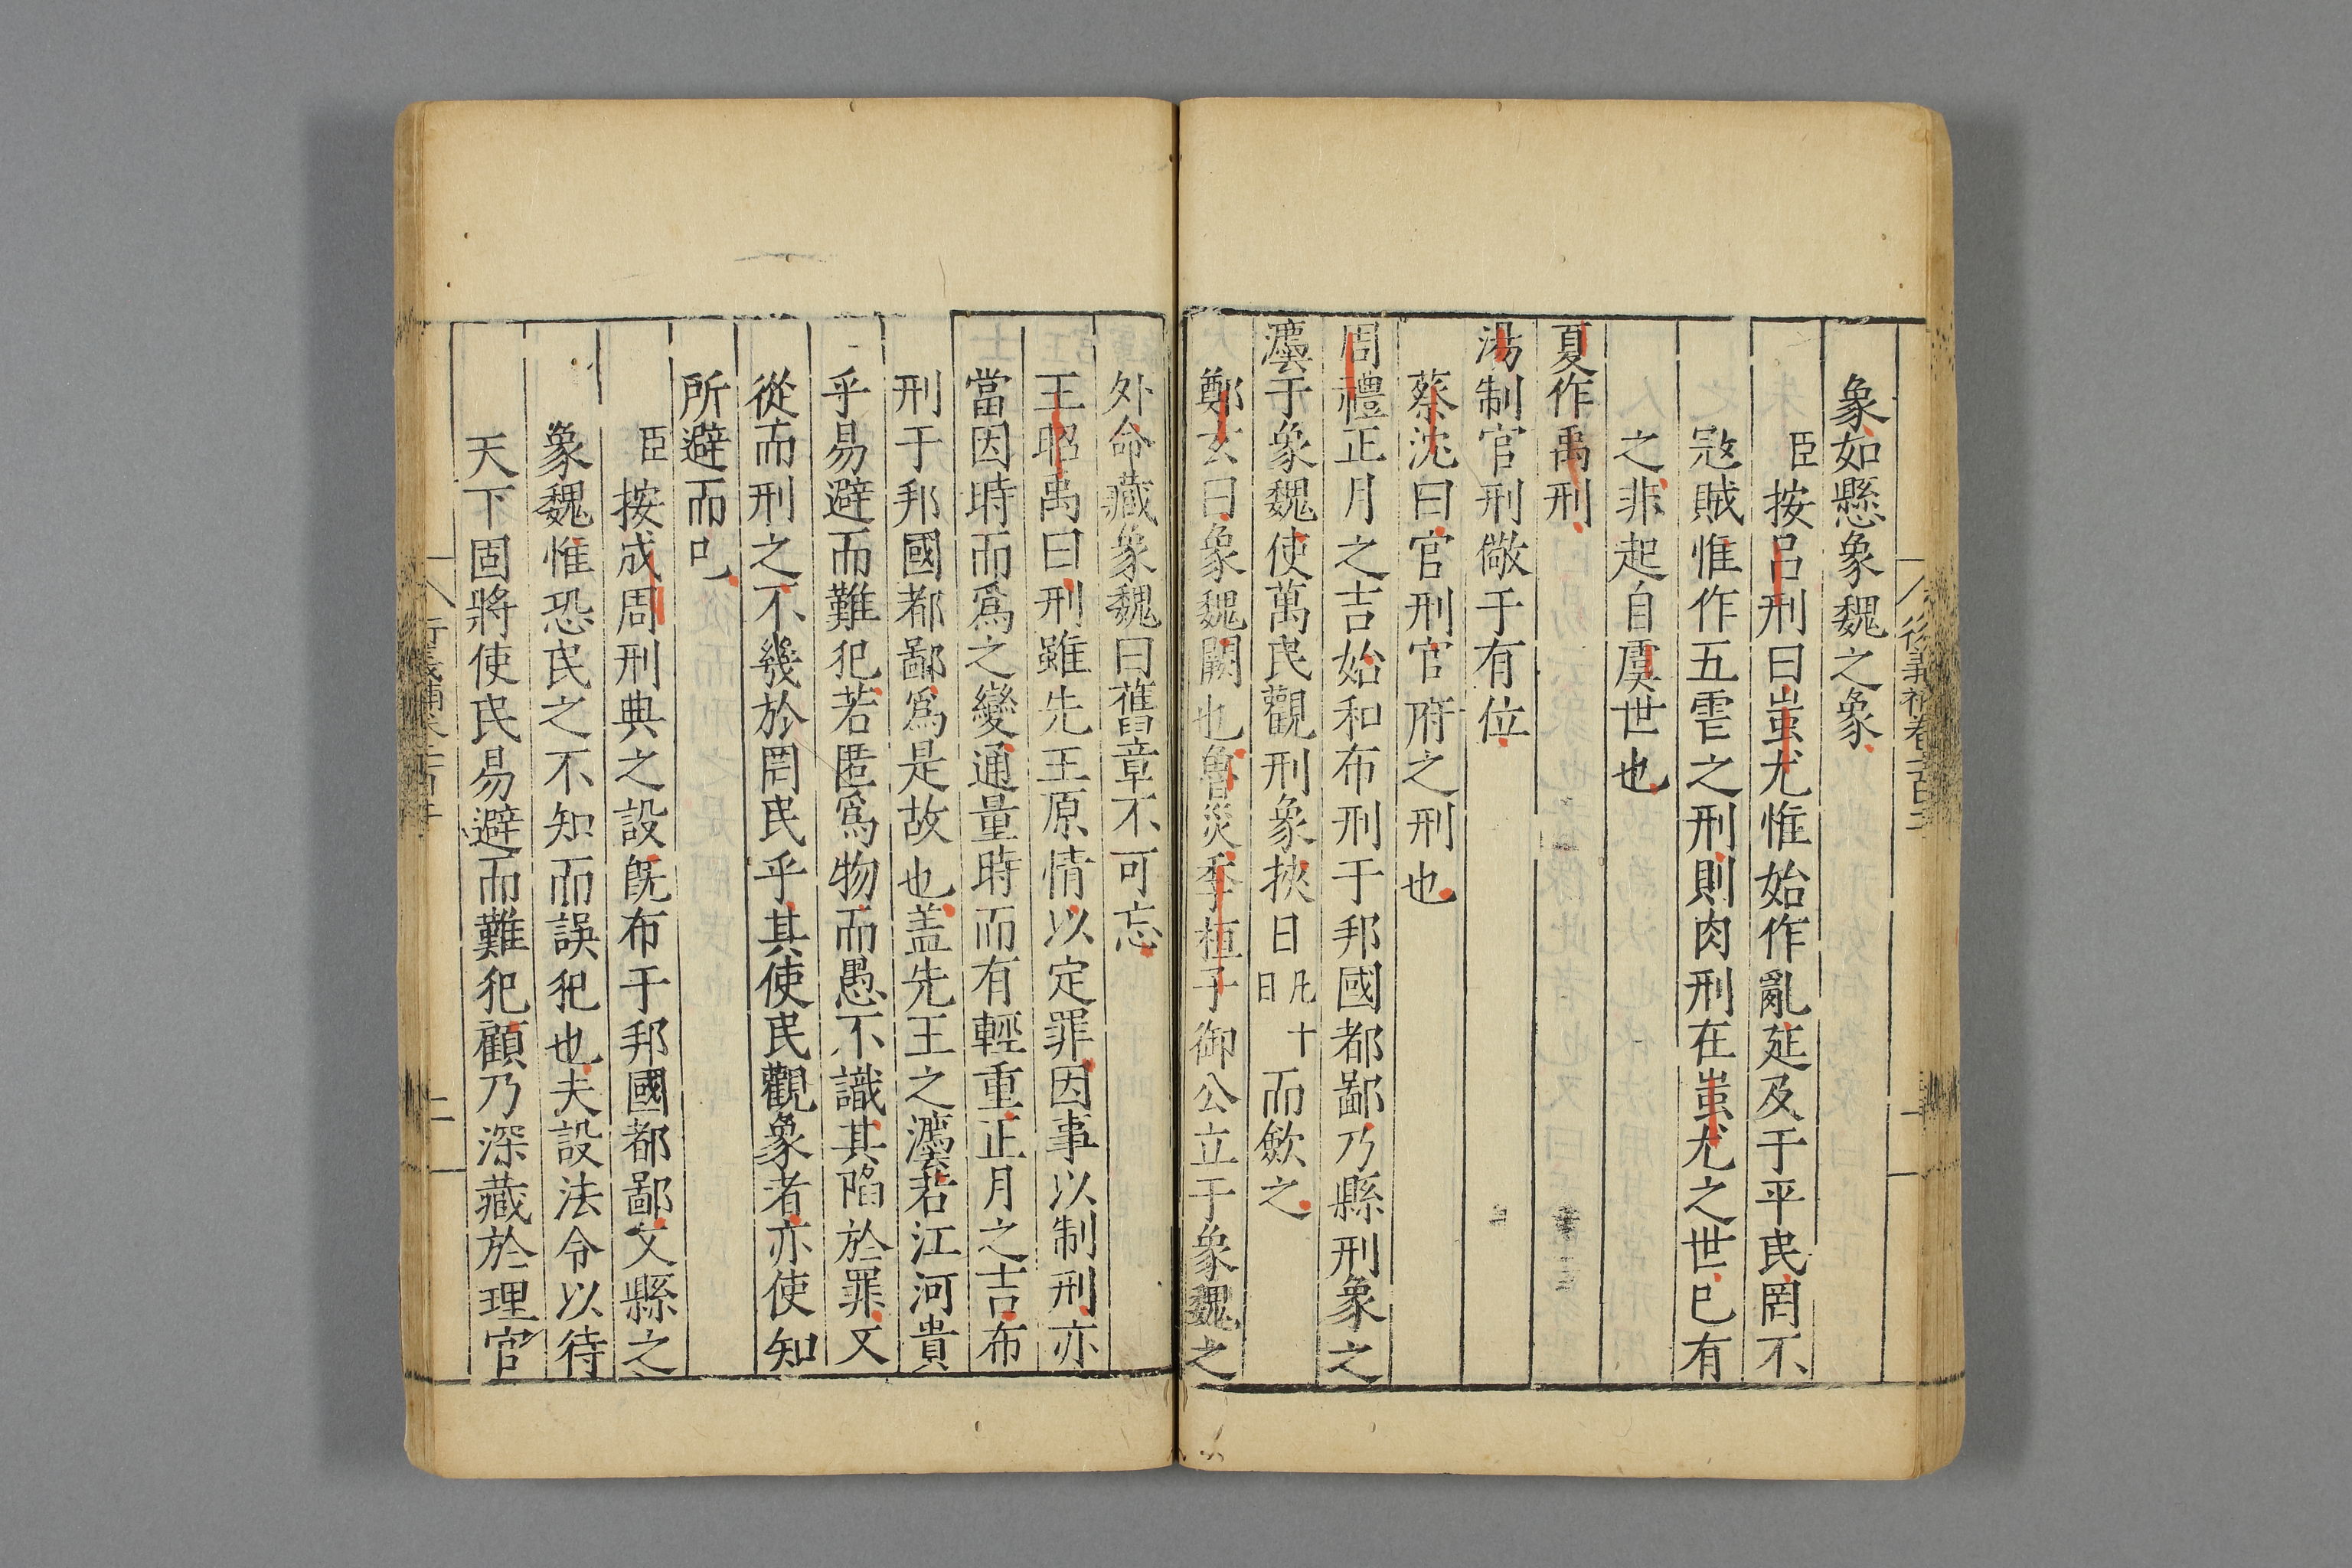 象如懸象魏之象
臣按呂刑曰蚩尤惟始作亂延及于平民罔不
寇賊惟作五虐之刑則肉刑在蚩尤之世已有
之非起自虞世也
夏作禹刑
湯制官刑儆于有位
蔡沈曰官刑官府之刑也
周禮正月之吉始和布刑于邦國都鄙乃縣刑象之
灋于象魏使萬民觀刑象挾日凡十日而斂之
鄭玄曰象魏闕也魯災季桓子御公立于象魏之
外命藏象魏曰舊章不可忘
王昭禹曰刑雖先王原情以定罪因事以制刑亦
當因時而爲之變通量時而有輕重正月之吉布
刑于邦國都鄙爲是故也盖先王之灋若江河貴
乎易避而難犯若匿爲物而愚不識其陷於罪又
從而刑之不幾於罔民乎其使民觀象者亦使知
所避而已
臣按成周刑典之設旣布于邦國都鄙又縣之
象魏惟恐民之不知而誤犯也夫設法令以待
天下固將使民易避而難犯顧乃深藏於理官